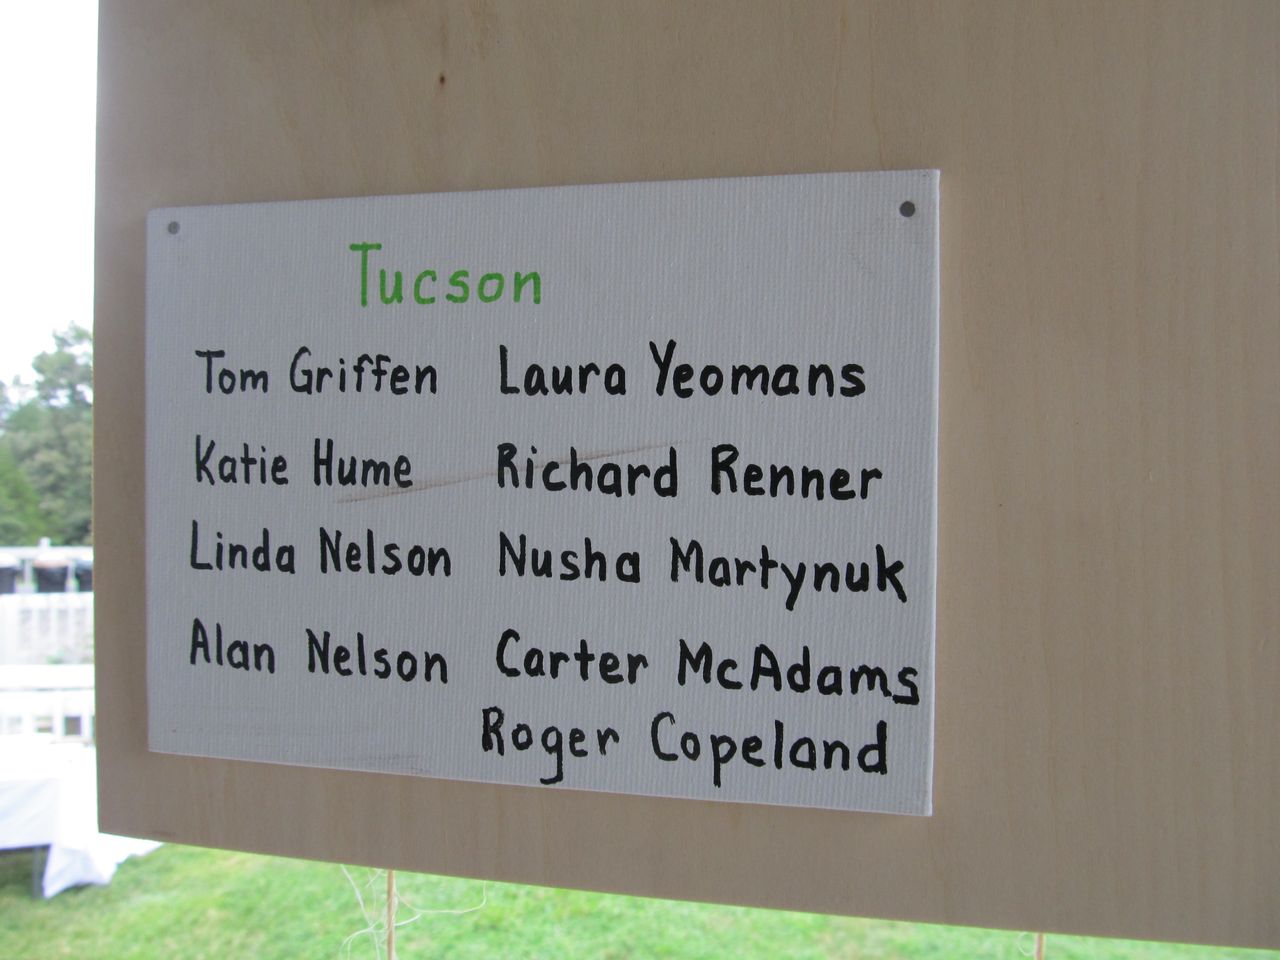 Tucson
Tom Griffen Laura Yeomans
Katie Hume Richard Renner
Linda Nelson Nusha Martynuk
Alan Nelson Carter McAdams
Roger Copeland